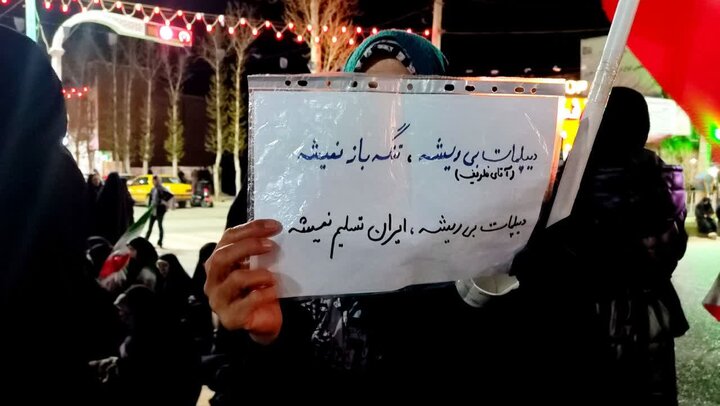 دیپلمات بی ریشه ، تنگه باز نمیشه
(آقای ظریف)
دیپلمات بی ریشه ، ایران تسلیم نمیشه